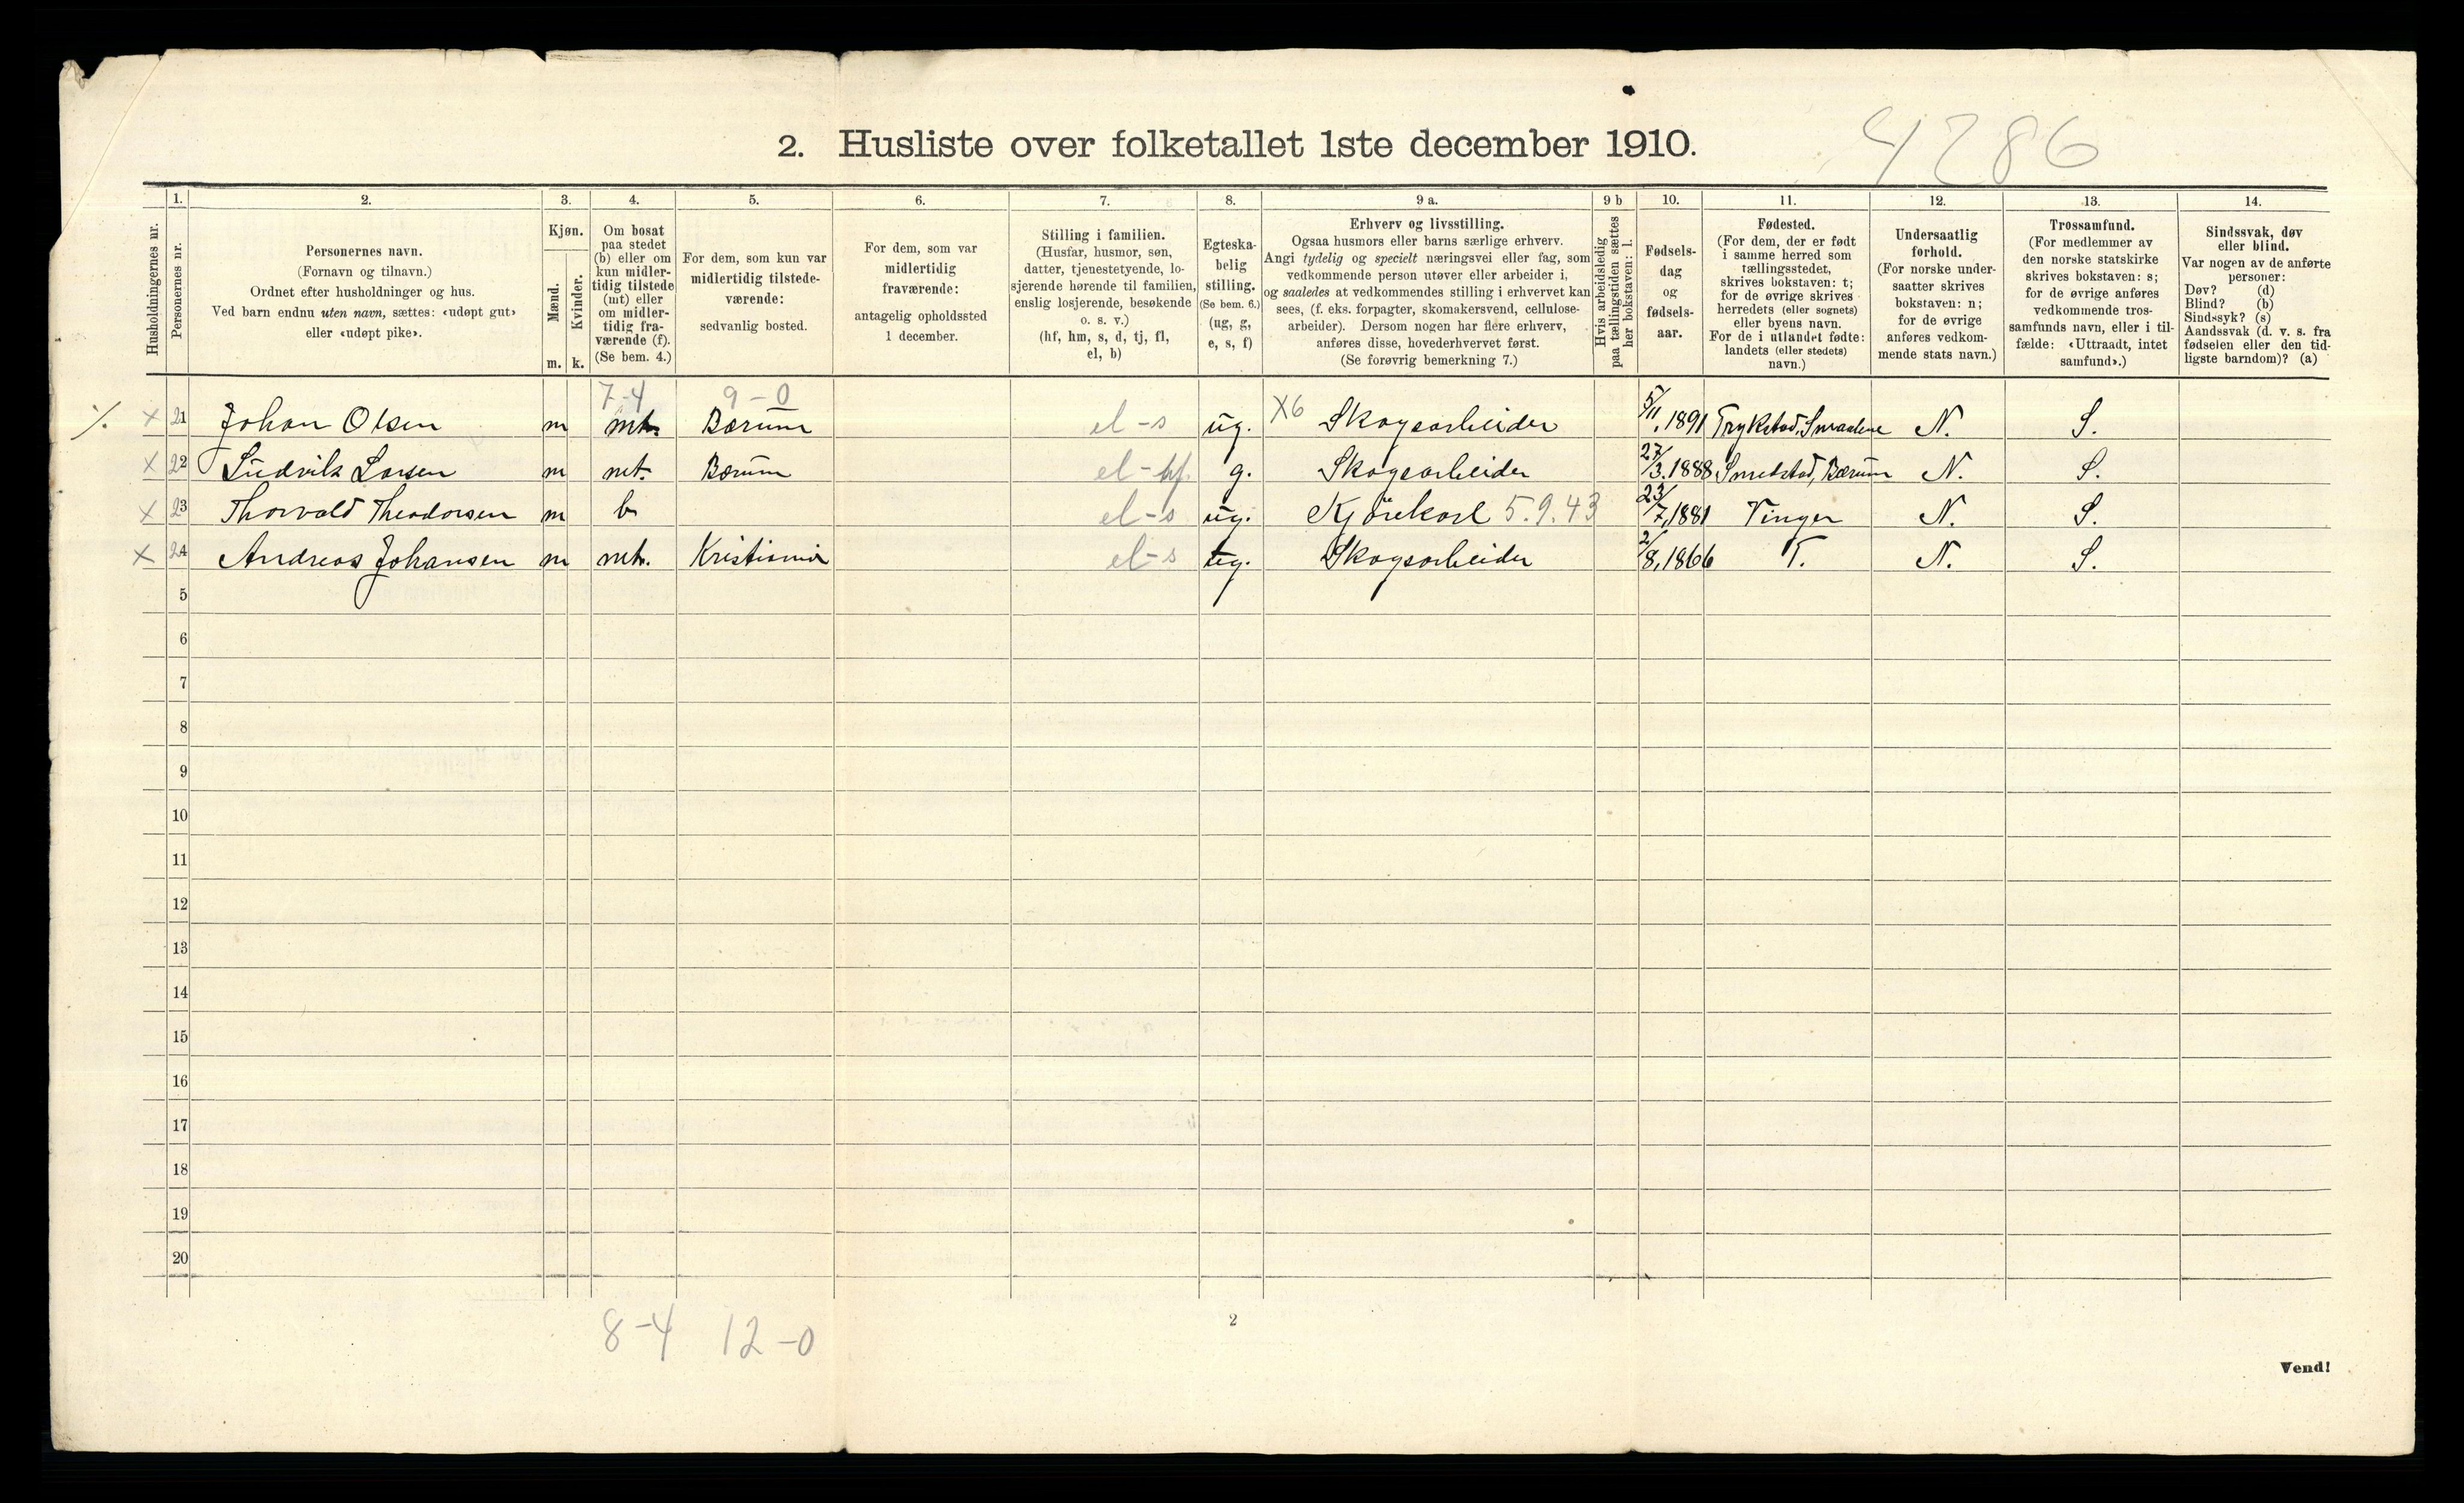 4286
2. Husliste over folketallet 1ste december 1910.
Husholdningernes nr.
1.
Personernes nr.
2.
Personernes navn.
(Fornavn og tilnavn.)
Ordnet efter husholdninger og hus.
Ved barn endnu uten navn, sættes: «udøpt gut»
eller «udøpt pike».
3.
Kjøn.
Mænd.
Kvinder.
m. k.
4.
Om bosat
paa stedet
(b) eller om
kun midler-
tidig tilstede
(mt) eller
om midler-
tidig fra-
værende (f).
(Se bem. 4.)
5.
For dem, som kun var
midlertidig tilstede-
værende:
sedvanlig bosted.
6.
For dem, som var
midlertidig
fraværende:
antagelig opholdssted
1 december.
7.
Stilling i familien.
(Husfar, husmor, søn,
datter, tjenestetyende, lo-
sjerende hørende til familien,
enslig losjerende, besøkende
o. s. v.)
(hf, hm, s, d, tj, fl,
el, b)
8.
Egteska-
belig
stilling.
(Se bem. 6.)
(ug, g,
e, s, f)
9 a.
Erhverv og livsstilling.
Ogsaa husmors eller barns særlige erhverv.
Angi tydelig og specielt næringsvei eller fag, som
vedkommende person utøver eller arbeider i,
og saaledes at vedkommendes stilling i erhvervet kan
sees, (f. eks. forpagter, skomakersvend, cellulose-
arbeider). Dersom nogen har flere erhverv,
anføres disse, hovederhvervet først.
(Se forøvrig bemerkning 7.)
9 b
Hvis arbeidsledig
paa tællingstiden sættes
her bokstaven: l.
10.
Fødsels-
dag
og
fødsels-
aar.
11.
Fødested.
(For dem, der er født
i samme herred som
tællingsstedet,
skrives bokstaven: t;
for de øvrige skrives
herredets (eller sognets)
eller byens navn.
For de i utlandet fødte:
landets (eller stedets)
navn.)
12.
Undersaatlig
forhold.
(For norske under-
saatter skrives
bokstaven: n;
for de øvrige
anføres vedkom-
mende stats navn.)
13.
Trossamfund.
(For medlemmer av
den norske statskirke
skrives bokstaven: s;
for de øvrige anføres
vedkommende tros-
samfunds navn, eller i til-
fælde: «Uttraadt, intet
samfund».)
14.
Sindssvak, døv
eller blind.
Var nogen av de anførte
personer:
Døv? (d)
Blind? (b)
Sindssyk? (s)
Aandssvak (d. v. s. fra
fødselen eller den tid-
ligste barndom)? (a)
7-4 9-0
x 21 Johan Olsen m mt. Bærum el-s ug. X6 Skogsarbeider 5/11, 1891 Trykstad, Smaalene N. S.
x 22 Ludvik Larsen m mt. Bærum el-hf g. Skogsarbeider 27/3. 1888 Smedstad, Bærum N. S.
x 23 Thorvald Theodorsen m b el-s ug. Kjørekarl 5.9.43 23/7, 1881 Vinger N. S.
x 24 Andreas Johansen m mt. Kristiania el-s ug. Skogsarbeider 2/8, 1866 T. N. S.
5
6
7
8
9
10
11
12
13
14
15
16
17
18
19
20
8-4 12-0
2
Vend!